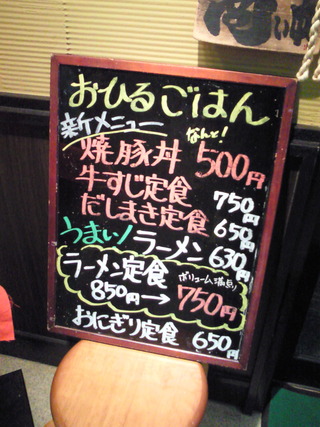 おひるごはん
新メニュー
なんと!
焼豚丼 500円
牛すじ定食 750円
だしまき定食 650円
うまい!ラーメン 630円
ラーメン定食 ボリューム満点!
850円→750円
おにぎり定食 650円